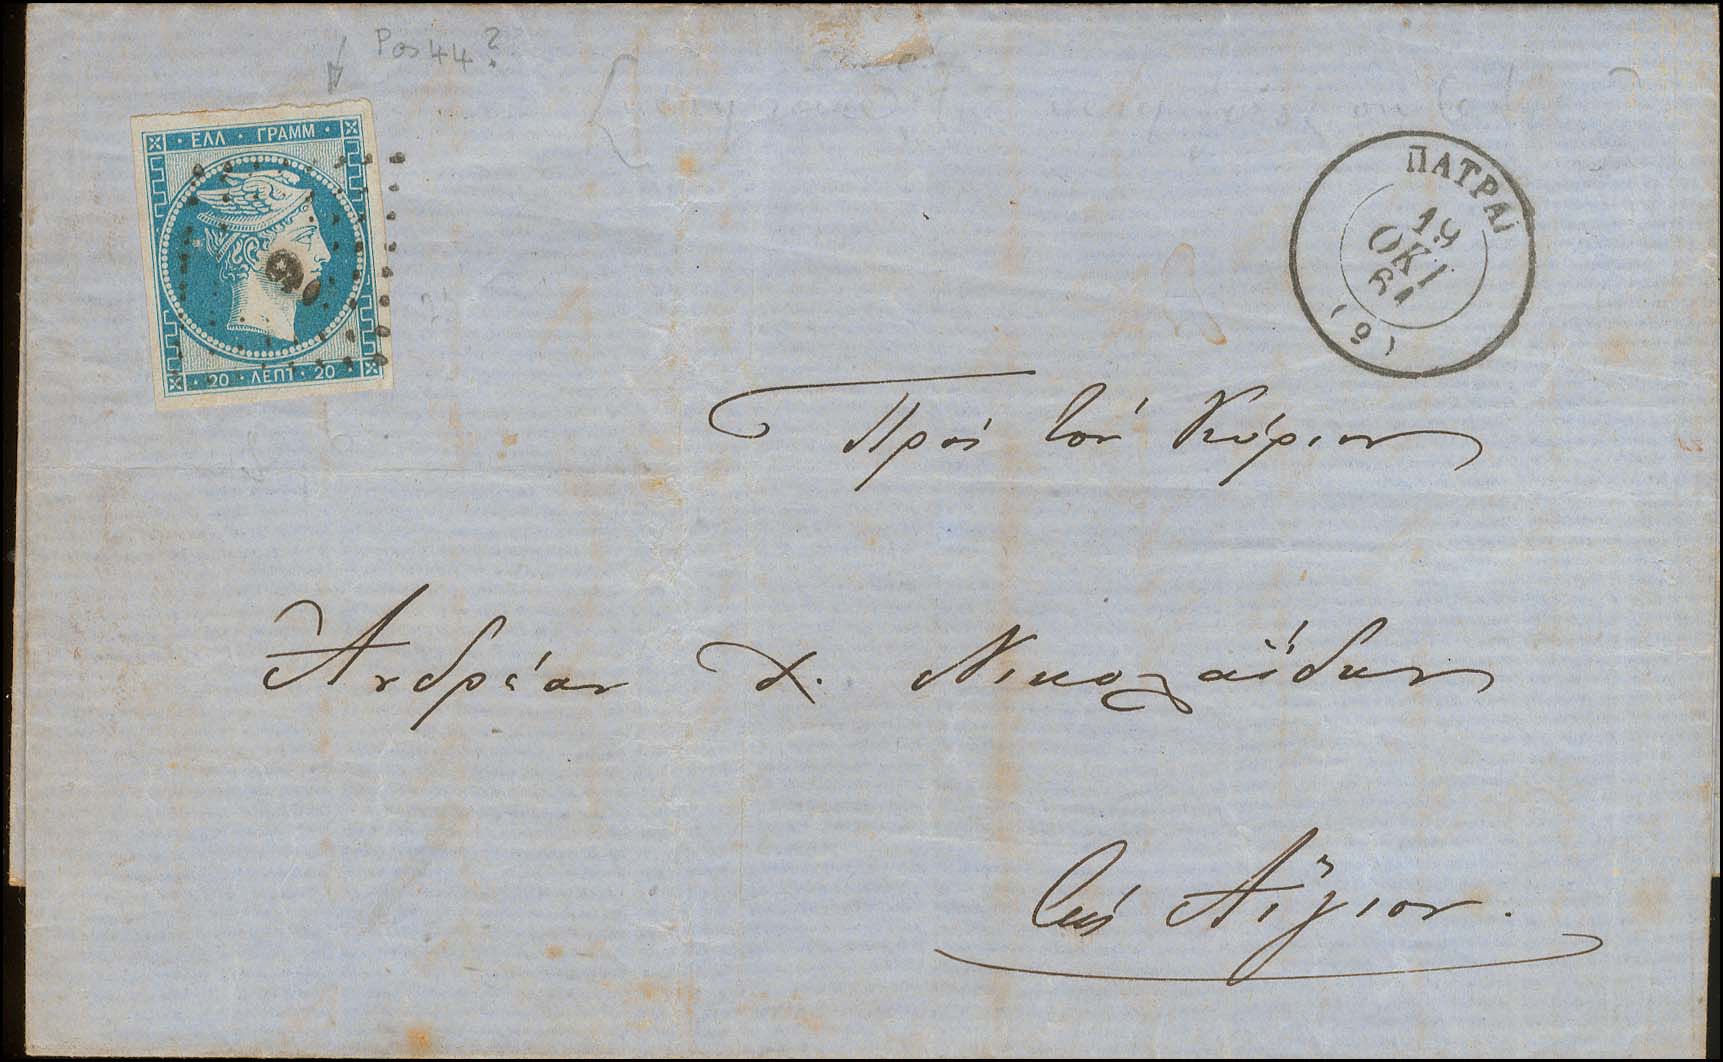 Pos 44?
ΕΛΛ · ΓΡΑΜΜ ·
9
· 20 · ΛΕΠΤ · 20 ·
ΠΑΤΡΑΙ
19
ΟΚΤ
61
(9)
Πρὸς τὸν Κύριον
Ἀνδρέαν χ. Νικολαΐδην
εἰς Αἴγιον.